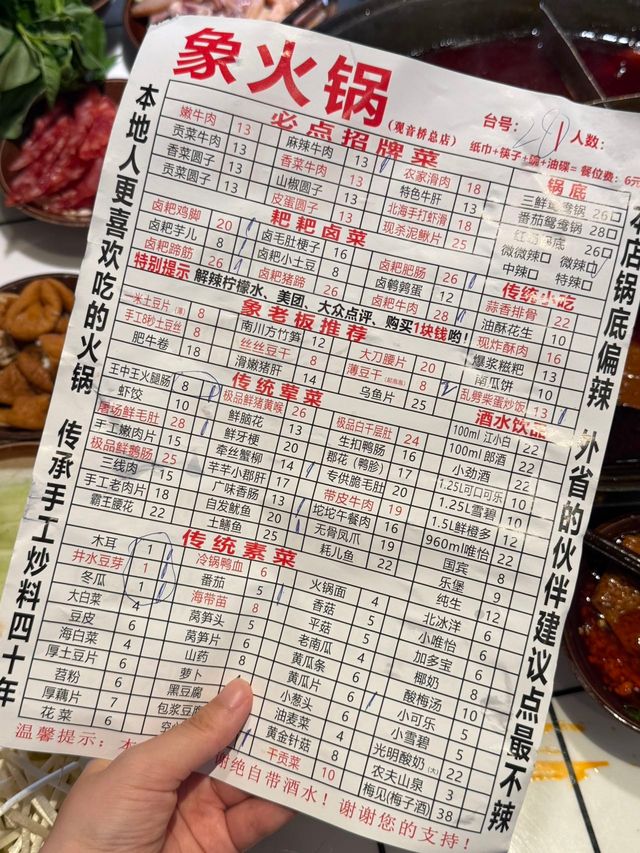 象火锅
(观音桥总店)
台号: 人数:
纸巾+筷子+碗+油碟=餐位费:6元
本地人更喜欢吃的火锅 传承手工炒料四十年
本店锅底偏辣 外省的伙伴建议点最不辣
必点招牌菜
嫩牛肉 13 麻辣牛肉 13 农家滑肉 18
贡菜牛肉 13 香菜牛肉 13 特色牛肝 13
香菜圆子 13 山椒圆子 13 北海手打虾滑 18
贡菜圆子 13 皮蛋圆子 13 现杀泥鳅片 25
锅底
三鲜鸳鸯锅 26□
番茄鸳鸯锅 28□
26□
微微辣□ 微辣□
中辣□ 特辣□
粑粑卤菜
卤粑鸡脚 20 卤毛肚梗子 16 卤粑肥肠 26
卤粑芋儿 8 卤粑小土豆 8 卤鹌鹑蛋 12
卤粑蹄筋 26 卤粑猪蹄 26 卤粑牛肉 28
特别提示 解辣柠檬水、美团、大众点评、购买1块钱哟!
传统小吃
蒜香排骨 22
油酥花生 10
现炸酥肉 16
爆浆糍粑 13
南瓜饼 10
乱劈柴蛋炒饭 13
象老板推荐
一米土豆片(薄) 8 南川方竹笋 12 大刀腰片 20
手工8秒土豆丝 8 丝丝豆干 8 薄豆干 8
肥牛卷 18 滑嫩猪肝 14 乌鱼片 25
传统荤菜
王中王火腿肠 8 极品鲜猪黄喉 26 极品白千层肚 24
虾饺 10 鲜脑花 13 生扣鸭肠 16
屠场鲜毛肚 28 鲜牙梗 20 郡花(鸭胗) 17
手工嫩肉片 15 牵丝蟹柳 14 专供脆毛肚 20
极品鲜鹅肠 25 芊芊小郡肝 17 带皮牛肉 19
三线肉 15 广味香肠 13 坨坨午餐肉 16
手工老肉片 18 自发鱿鱼 20 无骨凤爪 19
霸王腰花 22 土鳝鱼 25 耗儿鱼 22
酒水饮品
100ml 江小白 22
100ml 郎酒 22
小劲酒 22
1.25L可口可乐 10
1.25L雪碧 10
1.5L鲜橙多 12
960ml唯怡 22
国宾 8
乐堡 9
纯生 12
北冰洋 6
小唯怡 6
加多宝 6
椰奶 8
酸梅汤 10
小可乐 5
小雪碧 5
光明酸奶(大) 22
农夫山泉 3
梅见(梅子酒) 38
传统素菜
木耳 1 冷锅鸭血 6 火锅面 4
井水豆芽 1 番茄 5 香菇 5
冬瓜 1 海带苗 8 平菇 5
大白菜 4 莴笋头 5 老南瓜 4
豆皮 6 莴笋片 6 黄瓜条 6
海白菜 4 山药 8 黄瓜片 6
厚土豆片 6 萝卜 小葱头 6
苕粉 6 黑豆腐 油麦菜 4
厚藕片 7 包浆豆腐 黄金针菇 8
花菜 6 干贡菜 10
温馨提示: 谢绝自带酒水!谢谢您的支持!